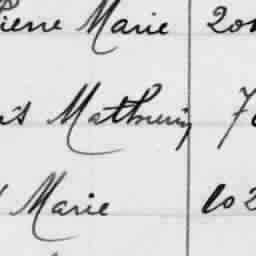 ierre Marie 20
is Mathurin 7
Marie 102